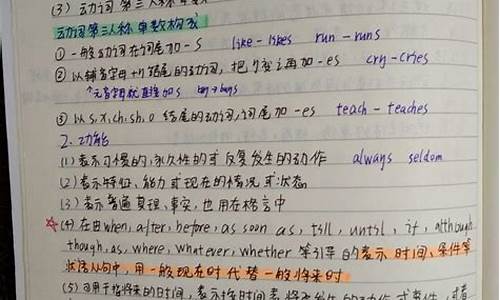 (3) 动词第三人称单数
动词第三人称单数构成
① 一般动词在词尾加-s like-likes run-runs
② 以辅音字母+y结尾的动词，把y变i再加-es cry-cries
↑元音字母就直接加s buy-buys
③ 以s,x,ch,sh,o 结尾的动词,词尾加-es teach-teaches
2、功能
(1) 表示习惯的,永久性的或反复发生的动作 always seldom
(2) 表示特征、能力或现在的情况或状态
(3) 表示普遍真理、事实,也用在格言中
☆(4) 在由when,after,before,as soon as,till,until,if,although
though,as,where,whatever,whether等引导的表示时间、条件等
状语从句中,用一般现在时代替一般将来时
(5) 可用于将来的时间,表示按时间表将要发生的动作或事件,或者